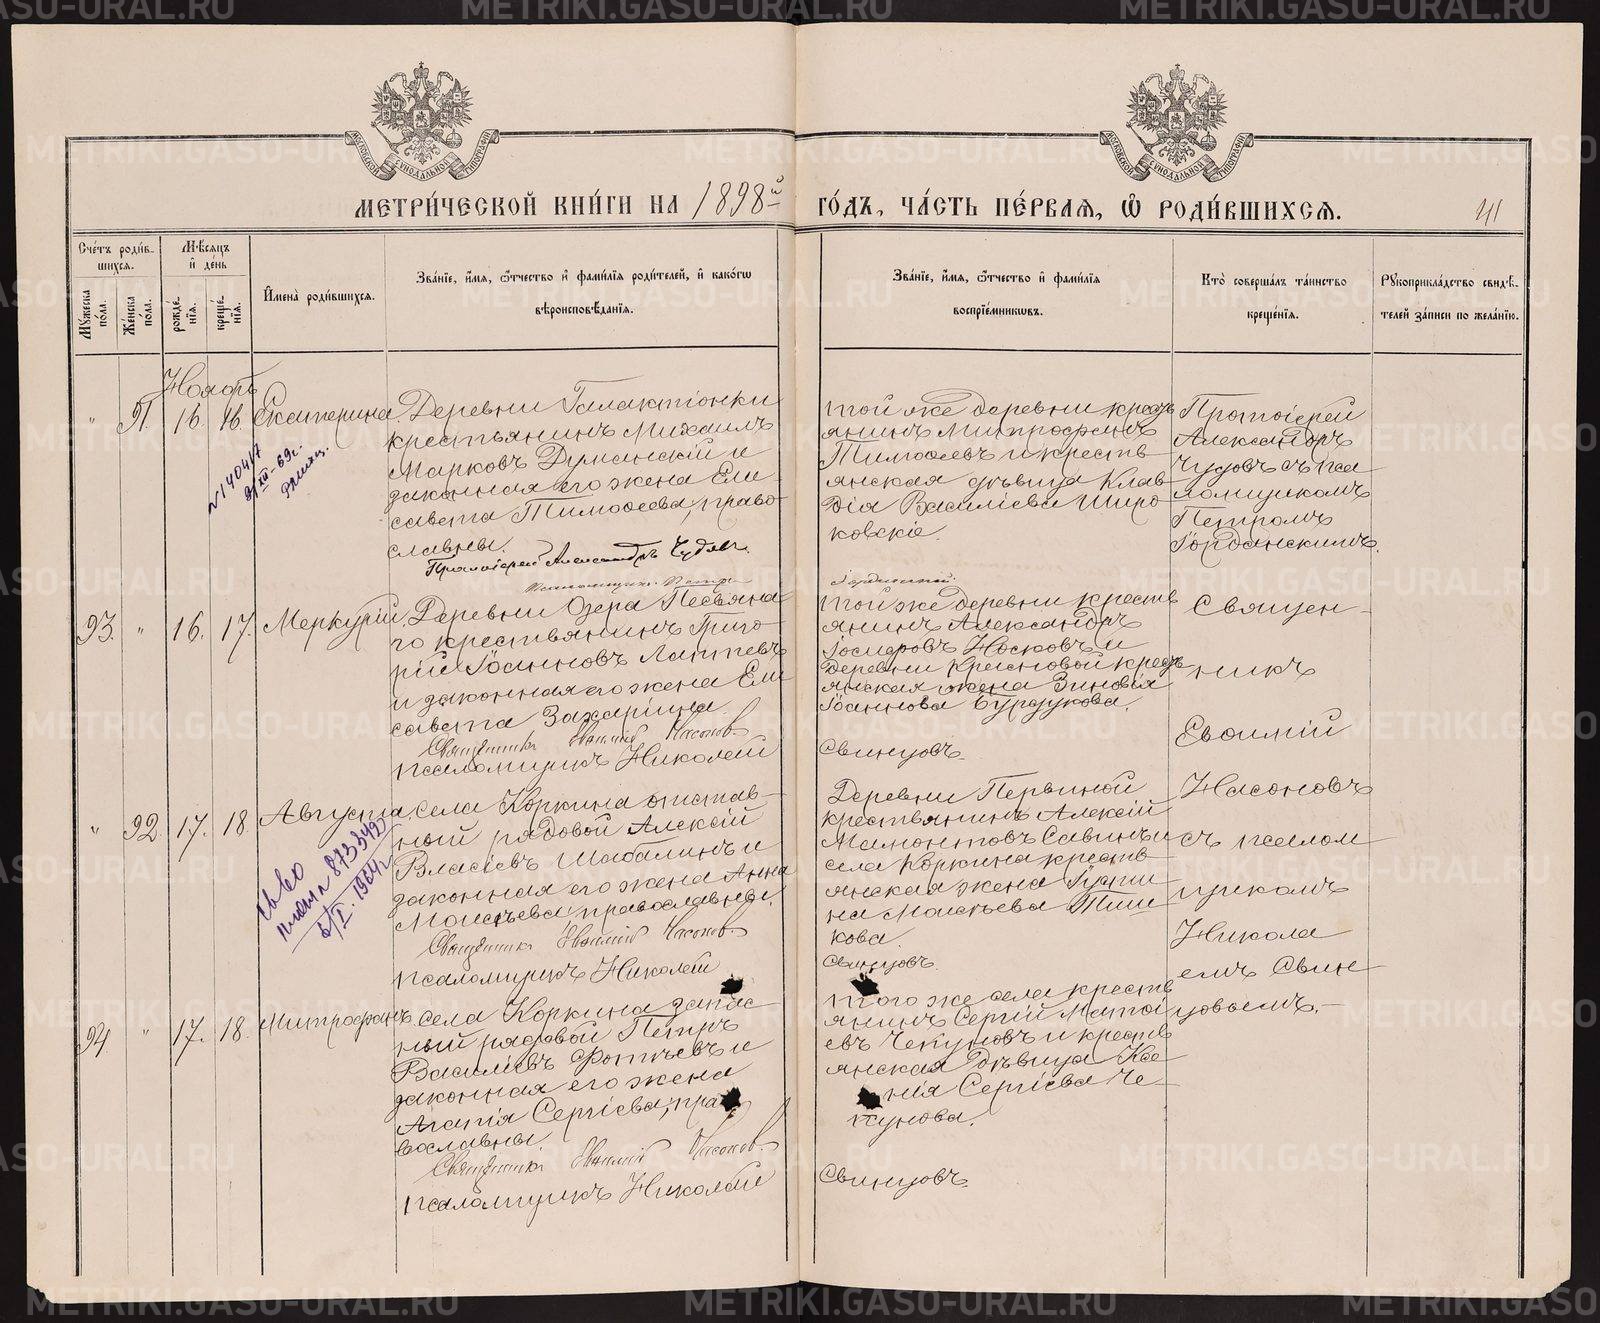 МЕТРИ́ЧЕСКОЙ КНИ́ГИ НА 1898й ГО́ДЪ, ЧА́СТЬ ПЕ́РВАЯ, Ѽ РОДИ́ВШИХСЯ.
41
Сче́тъ роди́в-
шихся.
Мѣ́сяцъ
и҆ де́нь
Му́жеска по́ла.
Же́нска по́ла.
рожде́нїя.
креще́нїя.
И҆мена̀ роди́вшихся.
Зва́нїе, и҆́мя, ѻ҆́тчество и҆ фами́лїя роди́телей, и҆ како́гѡ
вѣроисповѣ́данїя.
Зва́нїе, и҆́мя, ѻ҆́тчество и҆ фами́лїя
воспрїе́мникѡвъ.
Кто̀ соверша́лъ та́инство
креще́нїя.
Рꙋкоприкла́дство свидѣ́-
телей за́писи по жела́нїю.
Ноябрь
" 91. 16. 16. Екатерина.
Деревни Галактіонки
крестьянинъ Михаилъ
Марковъ Думанскій и
законная его жена Ели
савета Тимоѳеева, право
славны.
Протоіерей Александръ Чудовъ.
Псаломщикъ Петръ
Той же деревни кресть
янинъ Митрофанъ
Тимоѳеевъ и кресть
янская дѣвица Клав
дія Василіева Широ
ковскіе.
Протоіерей
Александръ
Чудовъ съ пса
ломщикомъ
Петромъ
Горданскимъ.
№ 140417
21/XII-69г.
93. " 16. 17. Меркурій.
Деревни Озера Песьяна
го крестьянинъ Григо
рій Іоанновъ Лаптевъ
и законная его жена Ели
савета Захаріина
Священникъ Евѳимій Насоновъ
Псаломщикъ Николай
Той же деревни кресть
янинъ Александръ
Носковъ и
Деревни Кресновой кресть
янская жена Зиновія
Іоаннова Бурдукова.
Свинцовъ.
Священ-
никъ
Евѳимій
Насоновъ
съ псалом
щикомъ
Никола
емъ Свин
цовымъ.-
" 92. 17. 18. Августа.
Села Коркина отстав-
ный рядовой Алексій
Власіевъ Шабалинъ и
законная его жена Анна
Моисѣева, православны.
Священникъ Евѳимій Насоновъ
Псаломщикъ Николай
Деревни Первиной
крестьянинъ Алексій
Мамонтовъ Савинъ и
села Коркина кресть
янская жена Густи
на Моисѣева Тиш
кова.
Свинцовъ.
873349
5/I. 1964г
94 " 17. 18. Митрофанъ.
Села Коркина запас
ный рядовой Петръ
Василіевъ Фотѣевъ и
законная его жена
Агапія Сергіева, пра
вославны.
Священникъ Евѳимій Насоновъ.
Псаломщикъ Николай
Того же села кресть
янинъ Сергій Матѳі
евъ Чекуновъ и кресть
янская дѣвица Ксе
нія Сергіева Че-
кунова.
Свинцовъ
METRIKI.GASO-URAL.RU